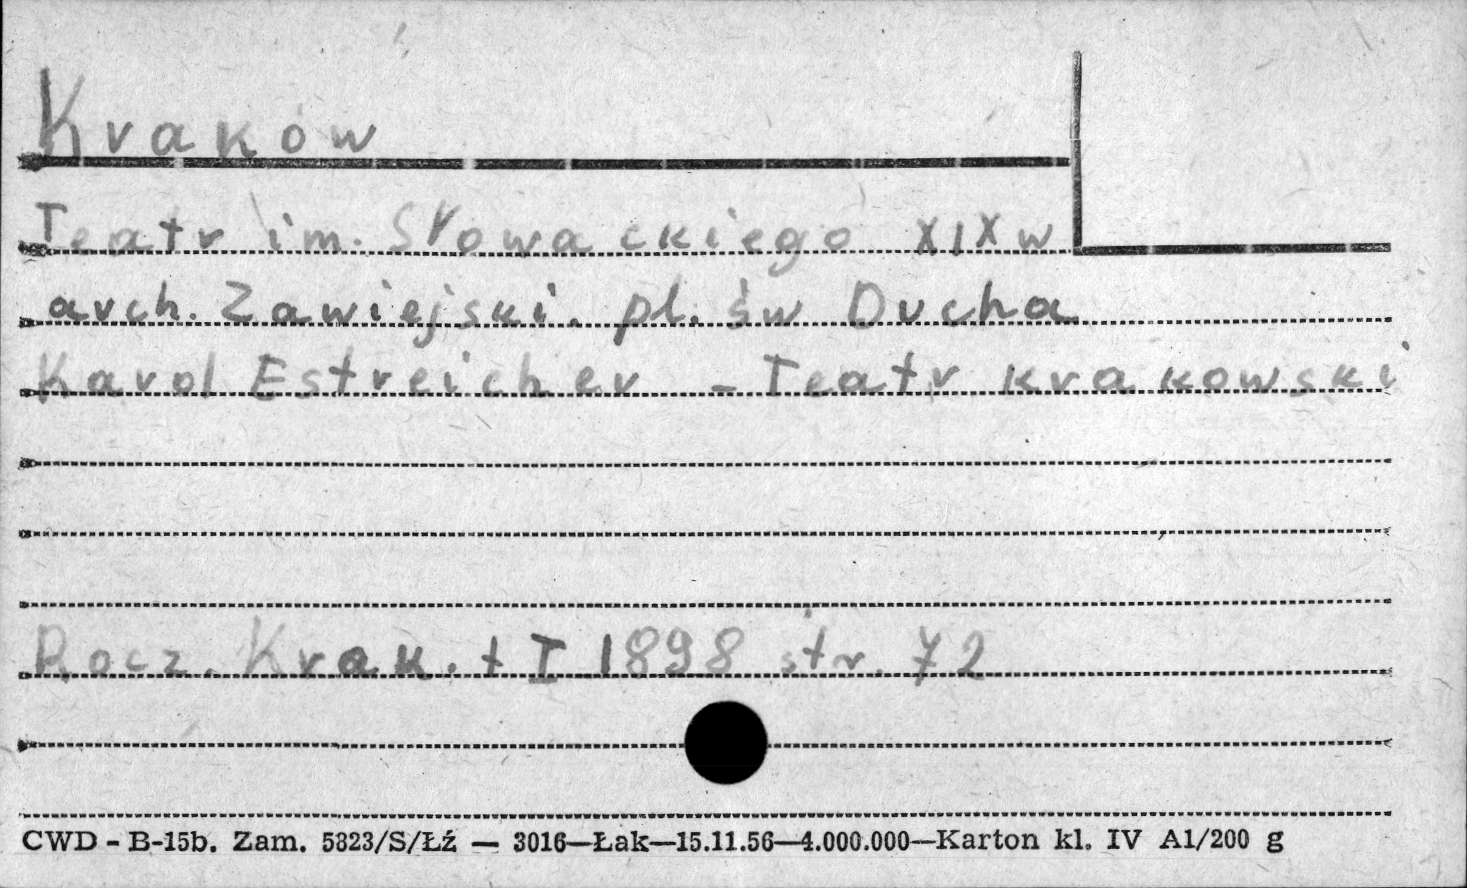 Kraków
Teatr im. Słowackiego XIX w
arch. Zawiejski. pl. św Ducha
Karol Estreicher - Teatr krakowski
Rocz. Krak. t I 1898 str. 72
CWD - B-15b. Zam. 5823/S/Łź — 3016—Łak—15.11.56—4.000.000—Karton kl. IV A1/200 g